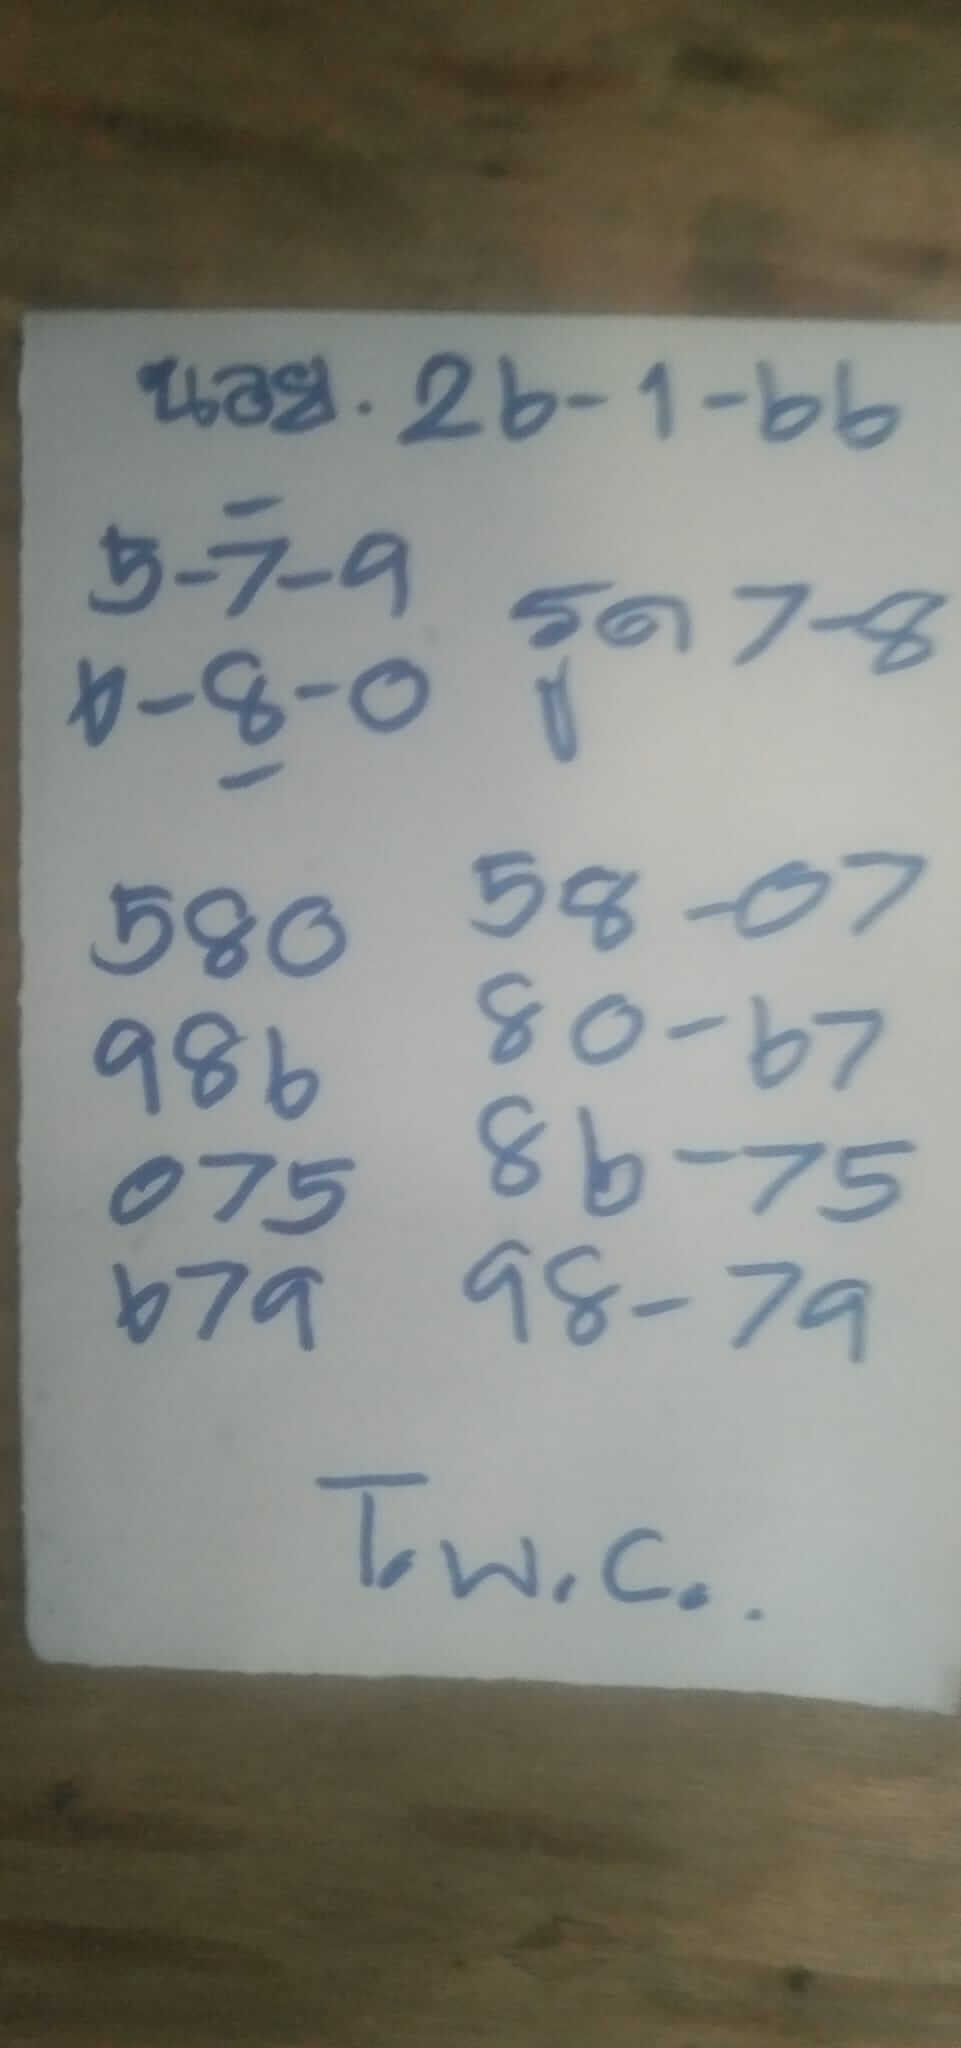 นอย. 26-1-66
5-7-9
6-8-0
รูด 7-8
580 58-07
986 80-67
075 86-75
679 98-79
T.W.C..